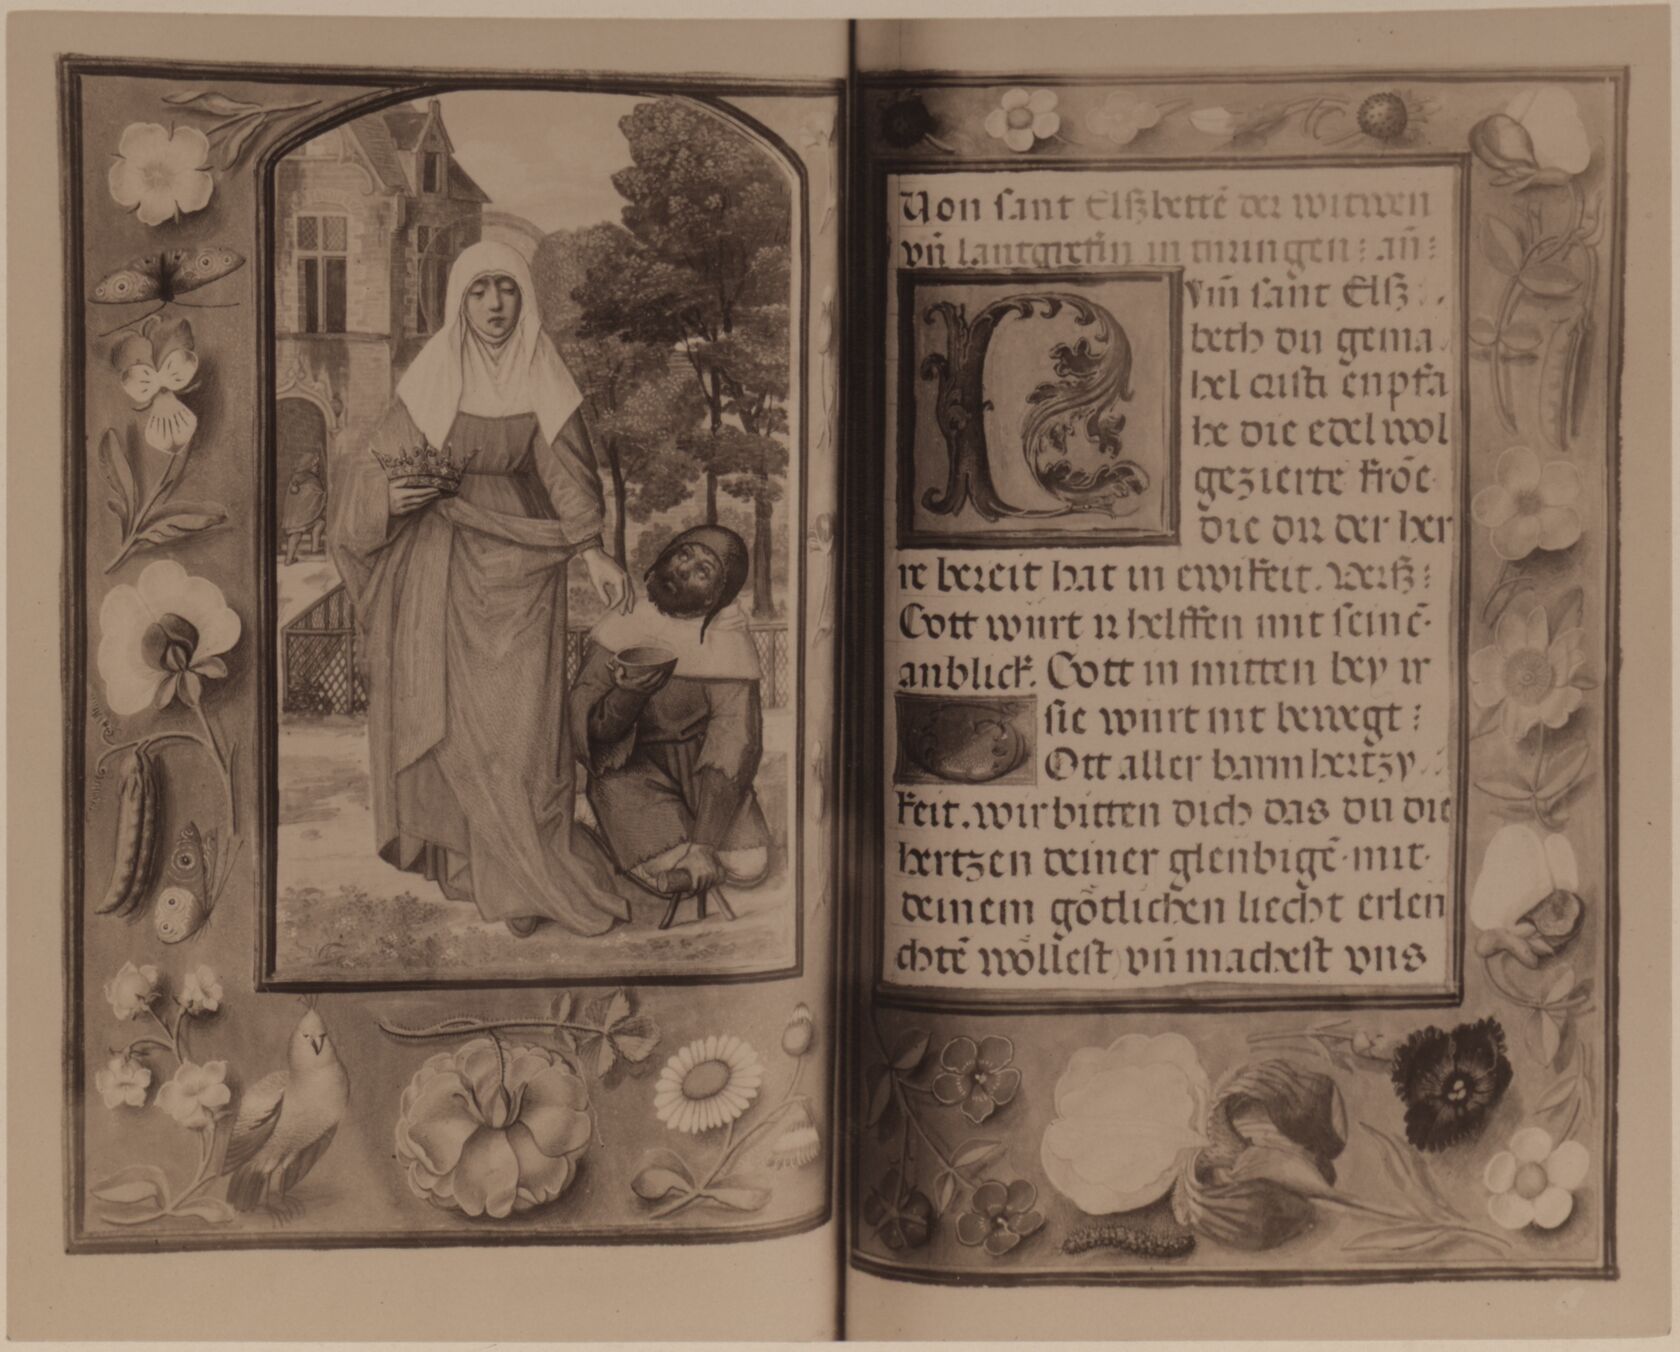 Von sant Elßbettē der witwen
vn̄ lantgrefin in düringen: an̄:
Vm̄ sant Elß
beth du gema
hel cristi enpfa
he die edel wol
gezierte krōe
die dir der her
re bereit hat in ewikeit. verß:
Gott würt ir helffen mit seinē
anblick. Gott in mitten bey ir
sie würt nit bewegt:
Ott aller barmhertzy
keit. wir bitten dich das du die
hertzen deiner glenbigē mit
deinem götlichen liecht erlen
chtē wöllest vn̄ machest vns